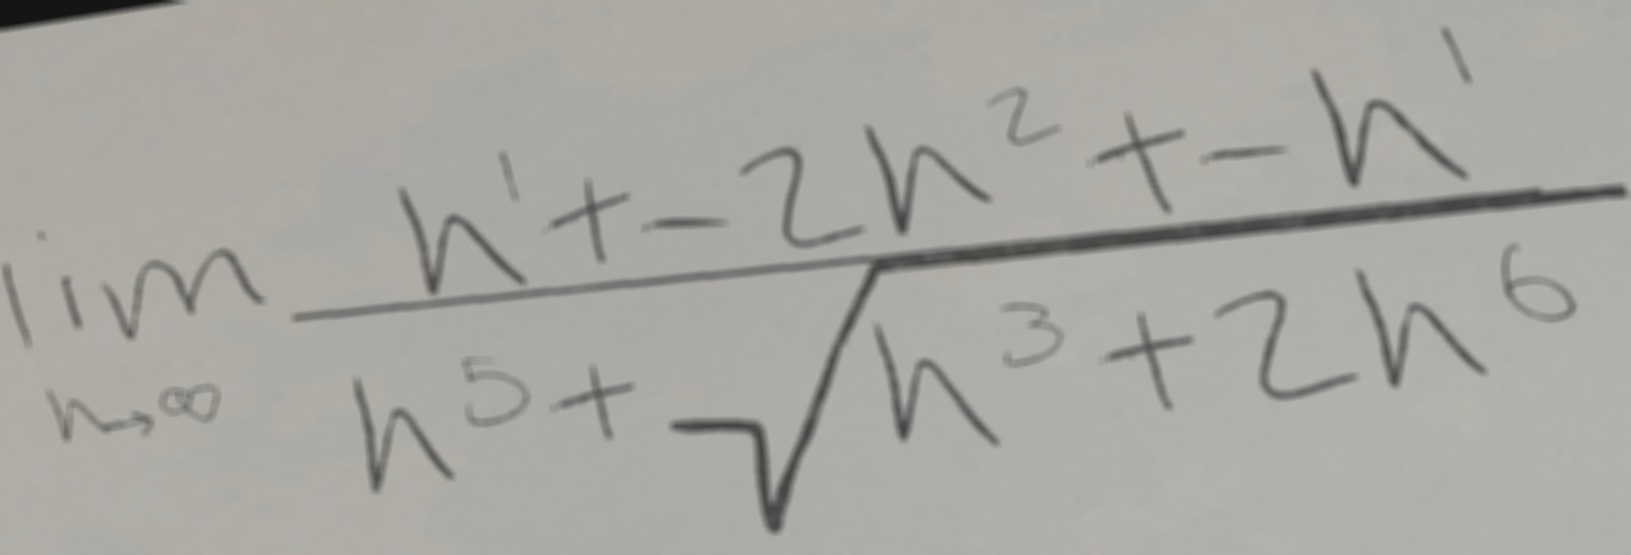 \lim_{n \to \infty} \frac{n^1 + -2n^2 + -n^1}{n^5 + \sqrt{n^3 + 2n^6}}